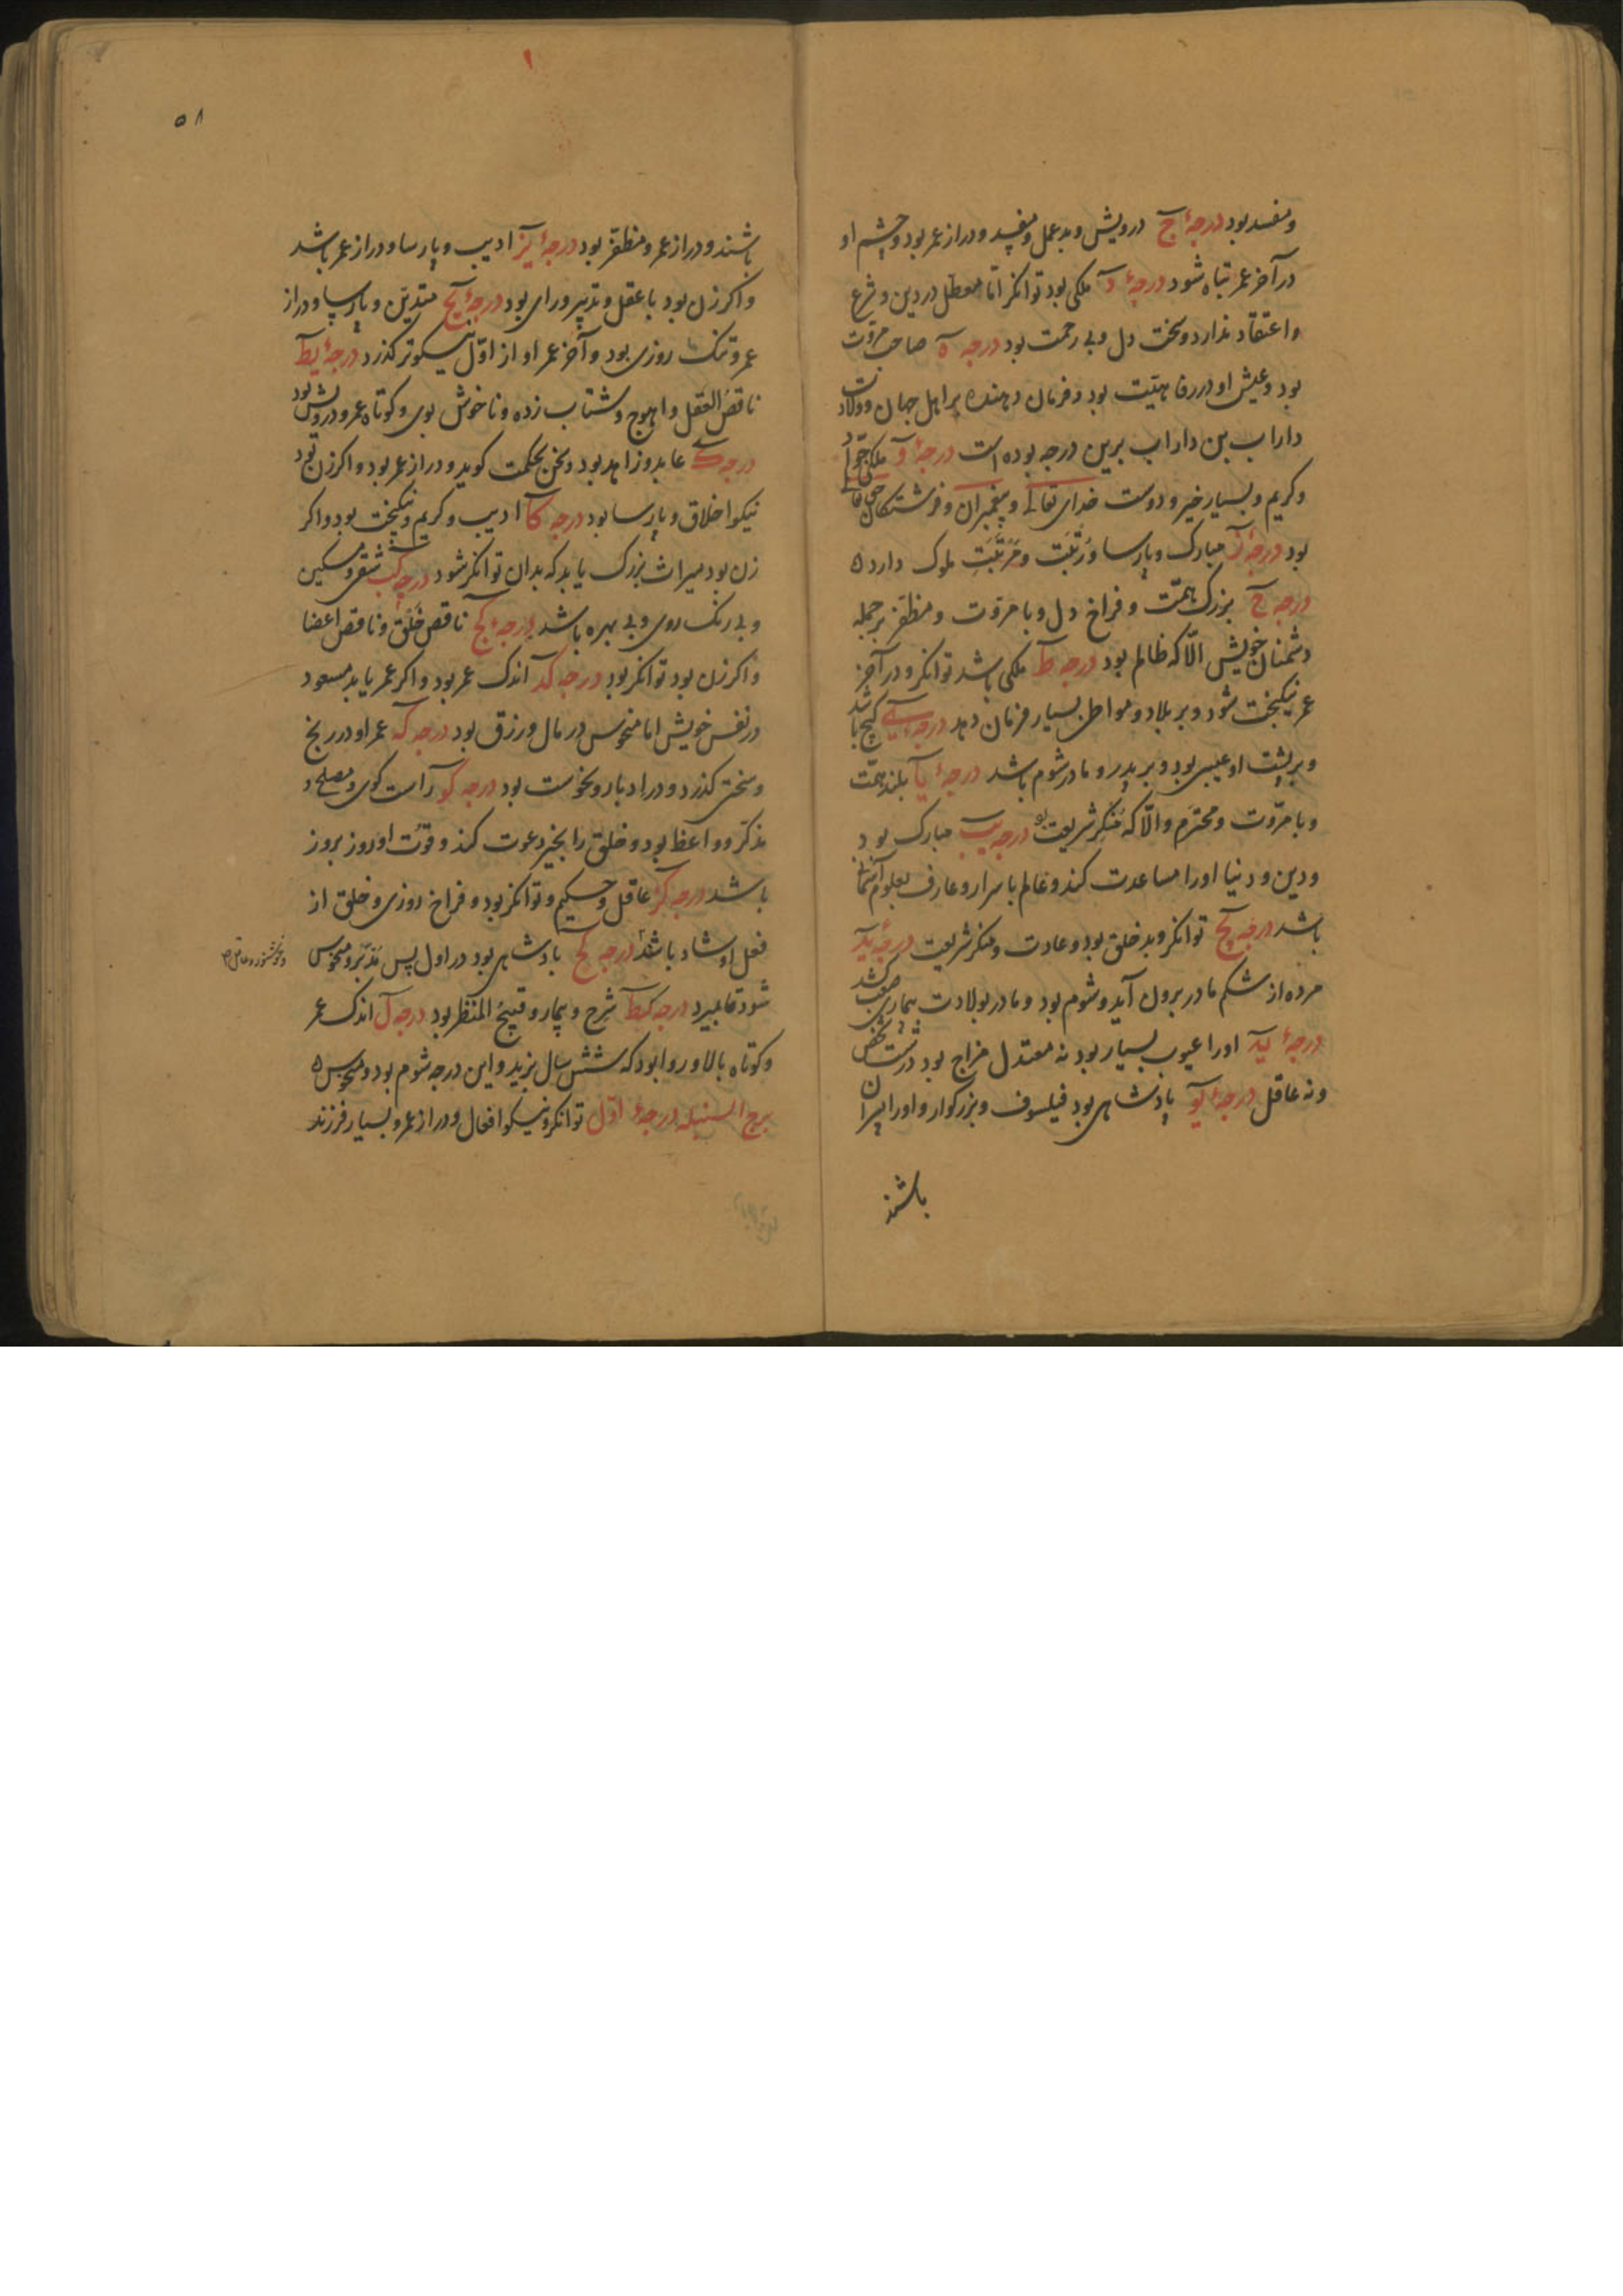 و مفسد بود درجهٔ ج درویش و بدعمل و مفسد و دراز عمر بود و چشم او
در آخر عمر تباه شود درجهٔ د ملکی بود توانکر امّا معطل در دین و شرع
و اعتقاد ندارد و سخت دل و بی رحمت بود درجه ه صاحب مروّت
بود و عیش او در رفاهیّت بود و فرمان دهنده بر اهل جهان و ولادت
داراب بن داراب برین درجه بوده است درجهٔ و ملکی جواد
و کریم و بسیار خیر و دوست خدای تعالی و پیغمبران و فرشتکان حق تعالی
بود درجهٔ ز مبارک و پارسا و رُتبَت و مَرتَبَتِ ملوک دارد ه
درجه ح بزرک همّت و فراخ دل و با مروّت و مظفّر بر جمله
دشمنان خویش الّا که ظالم بود درجه ط ملکی باشد توانکر و در آخر
عمر نیکبخت شود و بر بلاد و مواطن بسیار فرمان دهد درجه ی کج باشد
و بر پشت او عیبی بود و بر پدر و مادر شوم باشد درجهٔ یا بلند همّت
و با مروّت و محترم و الّا که مُنکِر شریعت بود درجه یب مبارک بود
و دین و دنیا او را مساعدت کند و عالم باسرار و عارف بعلوم آسمانی
باشد درجه یج توانکر و بد خلق بود و عادت و منکر شریعت درجهٔ ید
مرده از شکم مادر برون آید و شوم بود و مادر بولادت بیماری صعب کشد
درجهٔ یه او را عیوب بسیار بود نه معتدل مزاج بود درشت شخص
و نه عاقل درجهٔ یو پادشاهی بود فیلسوف و بزرکوار و او را پسران
باشند
۱
۵۸
باشند و دراز عمر و مظفّر بود درجهٔ یز ادیب و پارسا و دراز عمر باشد
و اکر زن بود با عقل و تدبیر و رای بود درجهٔ یح متدیّن و پارسا و دراز
عمر و تنک روزی بود و آخر عمر او از اوّل نیکوتر کذرد درجهٔ یط
ناقص العقل و اهوج و شتاب زده و ناخوش بوی و کوتاه عمر و درویش بود
درجه ک عابد و زاهد بود و سخن بحکمت کوید و دراز عمر بود و اکر زن بود
نیکو اخلاق و پارسا بود درجه کا ادیب و کریم و نیکبخت بود و اکر
زن بود میراث بزرک یابد که بدان توانکر شود درجه کب شقر و مسکین
و بی رنک روی و بی بهره باشد درجهٔ کج ناقص خَلق و ناقص اعضا
و اکر زن بود توانکر بود درجه کد اندک عمر بود و اکر عمر یابد مسعود
در نفس خویش اما منحوس در مال و رزق بود درجه که عمر او در رنج
و سختی کذرد و در ادبار و نحوست بود درجه کو راست کوی و مصلح و
مذکّر و واعظ بود و خلق را بخیر دعوت کند و قوّت او روز بروز
باشد درجه کز عاقل و حکیم و توانکر بود و فراخ روزی و خلق از
فعل او شاد باشند درجه کح پادشاهی بود در اول پس مُدبر و منحوس
شود تا بمیرد درجه کط شرح و بیمار و قبیح المنظر بود درجه ل اندک عمر
و کوتاه بالا و روا بود که شش سال بزید و این درجه شوم بود و منحوس ه
برج السنبله درجهٔ اوّل توانکر و نیکو افعال و دراز عمر و بسیار فرزند